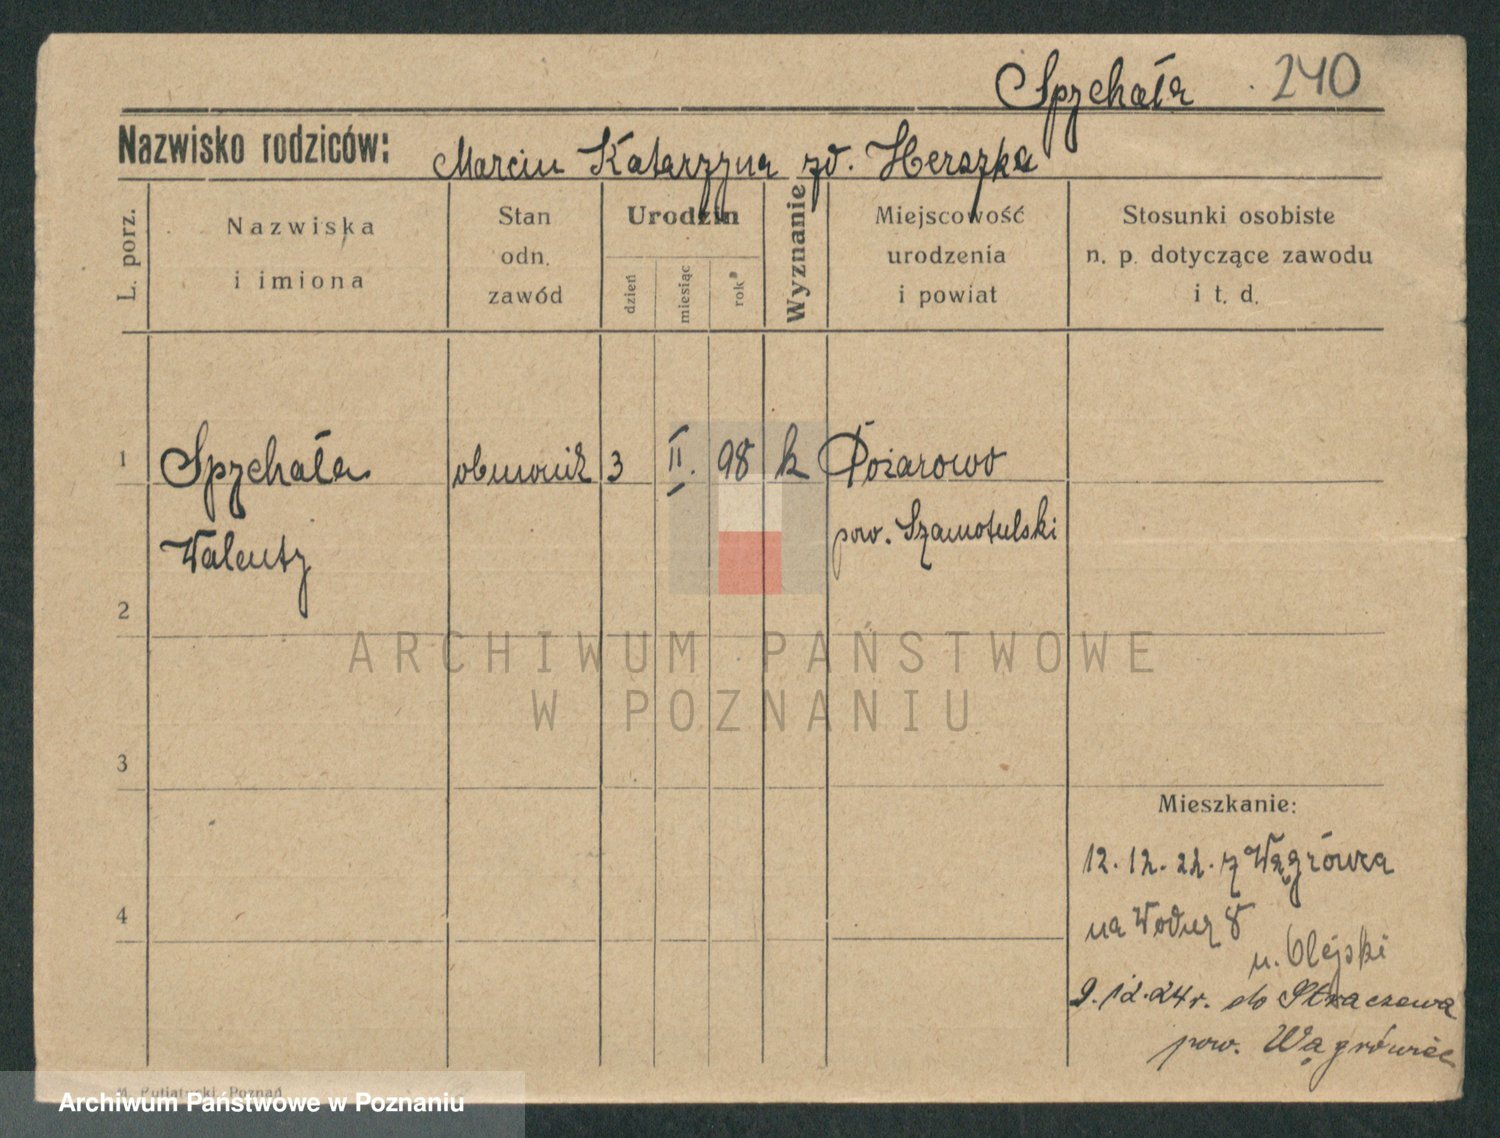 Spychała 240
Nazwisko rodziców: Marcin Katarzyna zd. Herszka
L. porz.
Nazwiska
i imiona
Stan
odn.
zawód
Urodzin
dzień
miesiąc
rok
Wyznanie
Miejscowość
urodzenia
i powiat
Stosunki osobiste
n. p. dotyczące zawodu
i t. d.
1 Spychała obuwnik 3 II. 98 k Pożarowo
Walenty pow. Szamotulski
2
3
Mieszkanie:
12.12.22. z Wągrówca
4
na Wodnej 8
u. Olejski
9.12.24 r. do
pow. Wągrówiec
ARCHIWUM PAŃSTWOWE
W POZNANIU
Poznań
Archiwum Państwowe w Poznaniu